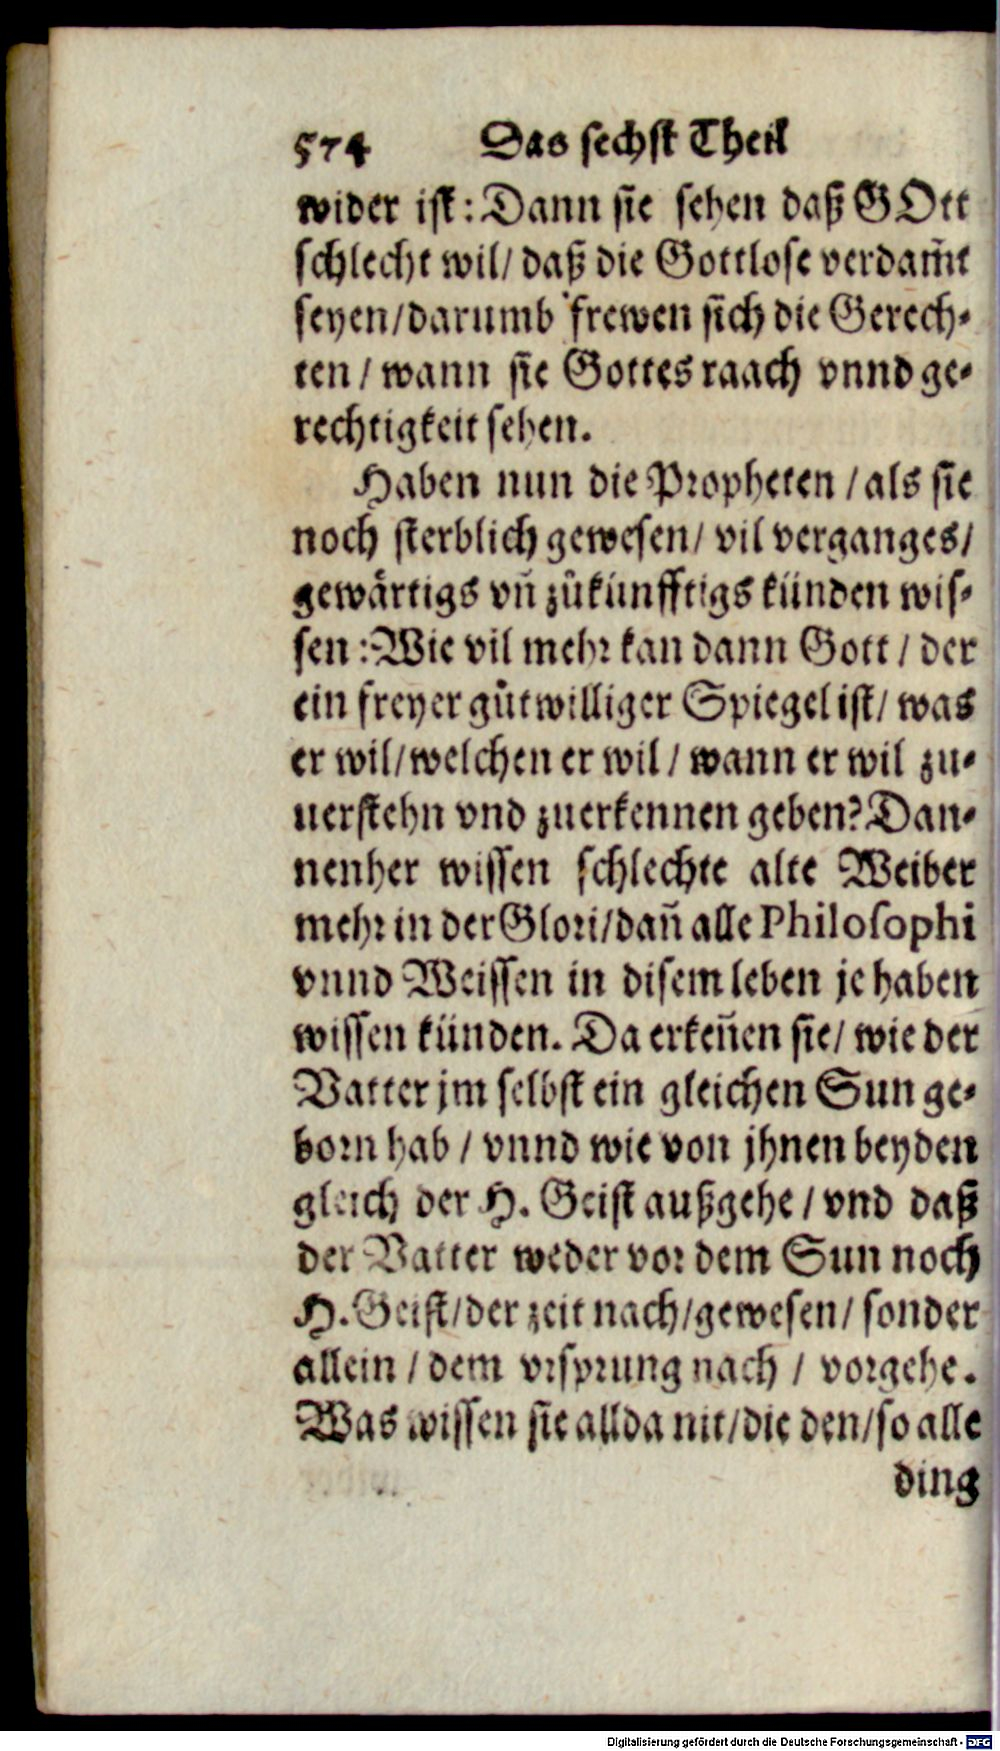 574 Das sechst Theil
wider ist: Dann sie sehen daß GOtt
schlecht wil/ daß die Gottlose verdam̃t
seyen/darumb frewen sich die Gerech-
ten / wann sie Gottes raach vnnd ge-
rechtigkeit sehen.
Haben nun die Propheten / als sie
noch sterblich gewesen/ vil verganges/
gewaͤrtigs vñ zůkünfftigs künden wis-
sen: Wie vil mehr kan dann Gott / der
ein freyer gůtwilliger Spiegel ist/ was
er wil/welchen er wil / wann er wil zu-
uerstehn vnd zuerkennen geben? Dan-
nenher wissen schlechte alte Weiber
mehr in der Glori/dañ alle Philosophi
vnnd Weissen in disem leben je haben
wissen künden. Da erkeñen sie/ wie der
Vatter jm selbst ein gleichen Sun ge-
born hab / vnnd wie von jhnen beyden
gleich der H. Geist außgehe / vnd daß
der Vatter weder vor dem Sun noch
H. Geist/der zeit nach/gewesen/ sonder
allein / dem vrsprung nach / vorgehe.
Was wissen sie allda nit/die den/so alle
ding
Digitalisierung gefördert durch die Deutsche Forschungsgemeinschaft - DFG